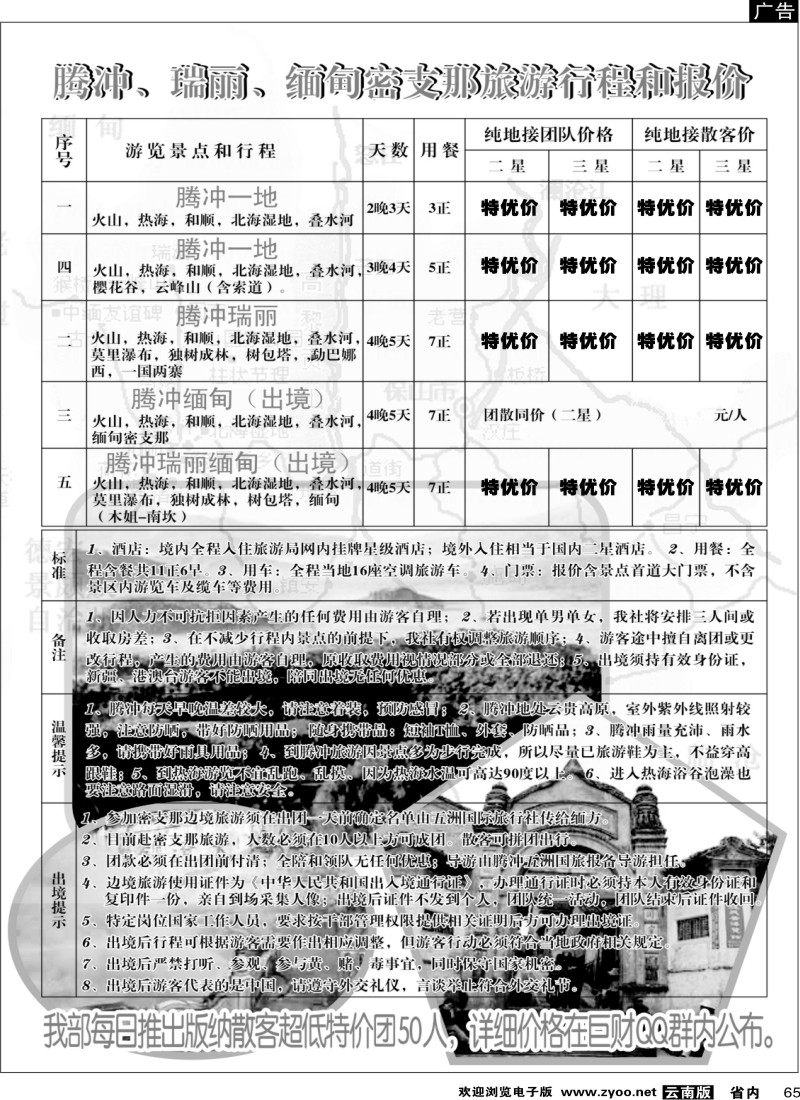 广告
腾冲、瑞丽、缅甸密支那旅游行程和报价
序号 游览景点和行程 天数 用餐 纯地接团队价格 纯地接散客价
二星 三星 二星 三星
一 腾冲一地 2晚3天 3正 特优价 特优价 特优价 特优价
火山，热海，和顺，北海湿地，叠水河
四 腾冲一地 3晚4天 5正 特优价 特优价 特优价 特优价
火山，热海，和顺，北海湿地，叠水河，
樱花谷，云峰山（含索道）。
二 腾冲瑞丽 4晚5天 7正 特优价 特优价 特优价 特优价
火山，热海，和顺，北海湿地，叠水河，
莫里瀑布，独树成林，树包塔，勐巴娜
西，一国两寨
三 腾冲缅甸（出境） 4晚5天 7正 团散同价（二星） 元/人
火山，热海，和顺，北海湿地，叠水河，
缅甸密支那
五 腾冲瑞丽缅甸（出境） 4晚5天 7正 特优价 特优价 特优价 特优价
火山，热海，和顺，北海湿地，叠水河，
莫里瀑布，独树成林，树包塔，缅甸
（木姐-南坎）
标准
1、酒店：境内全程入住旅游局网内挂牌星级酒店；境外入住相当于国内二星酒店。 2、用餐：全
程含餐共11正6早。3、用车：全程当地16座空调旅游车。4、门票：报价含景点首道大门票，不含
景区内游览车及缆车等费用。
备注
1、因人力不可抗拒因素产生的任何费用由游客自理； 2、若出现单男单女，我社将安排三人间或
收取房差；3、在不减少行程内景点的前提下，我社有权调整旅游顺序；4、游客途中擅自离团或更
改行程，产生的费用由游客自理，原收取费用视情况部分或全部退还；5、出境须持有效身份证，
新疆、港澳台游客不能出境，陪同出境无任何优惠
温馨提示
1、腾冲每天早晚温差较大，请注意着装，预防感冒；2、腾冲地处云贵高原，室外紫外线照射较
强，注意防晒，带好防晒用品；随身携带品：短袖T恤、外套、防晒品；3、腾冲雨量充沛、雨水
多，请携带好雨具用品；4、到腾冲旅游因景点多为步行完成，所以尽量已旅游鞋为主，不益穿高
跟鞋；5、到热海游览不宜乱跑、乱摸、因为热海水温可高达90度以上。6、进入热海浴谷泡澡也
要注意路面湿滑，请注意安全。
出境提示
1、参加密支那边境旅游须在出团一天前确定名单由五洲国际旅行社传给缅方。
2、目前赴密支那旅游，人数必须在10人以上方可成团。散客可拼团出行。
3、团款必须在出团前付清；全陪和领队无任何优惠；导游由腾冲五洲国旅报备导游担任。
4、边境旅游使用证件为《中华人民共和国出入境通行证》，办理通行证时必须持本人有效身份证和
复印件一份，亲自到场采集人像；出境后证件不发到个人，团队统一活动，团队结束后证件收回。
5、特定岗位国家工作人员，要求按干部管理权限提供相关证明后方可办理出境证。
6、出境后行程可根据游客需要作出相应调整，但游客行动必须符合当地政府相关规定。
7、出境后严禁打听、参观、参与黄、赌、毒事宜，同时保守国家机密。
8、出境后游客代表的是中国，请遵守外交礼仪，言谈举止符合外交礼节。
我部每日推出版纳散客超低特价团50人，详细价格在巨财QQ群内公布。
欢迎浏览电子版 www.zyoo.net 云南版 省内 65